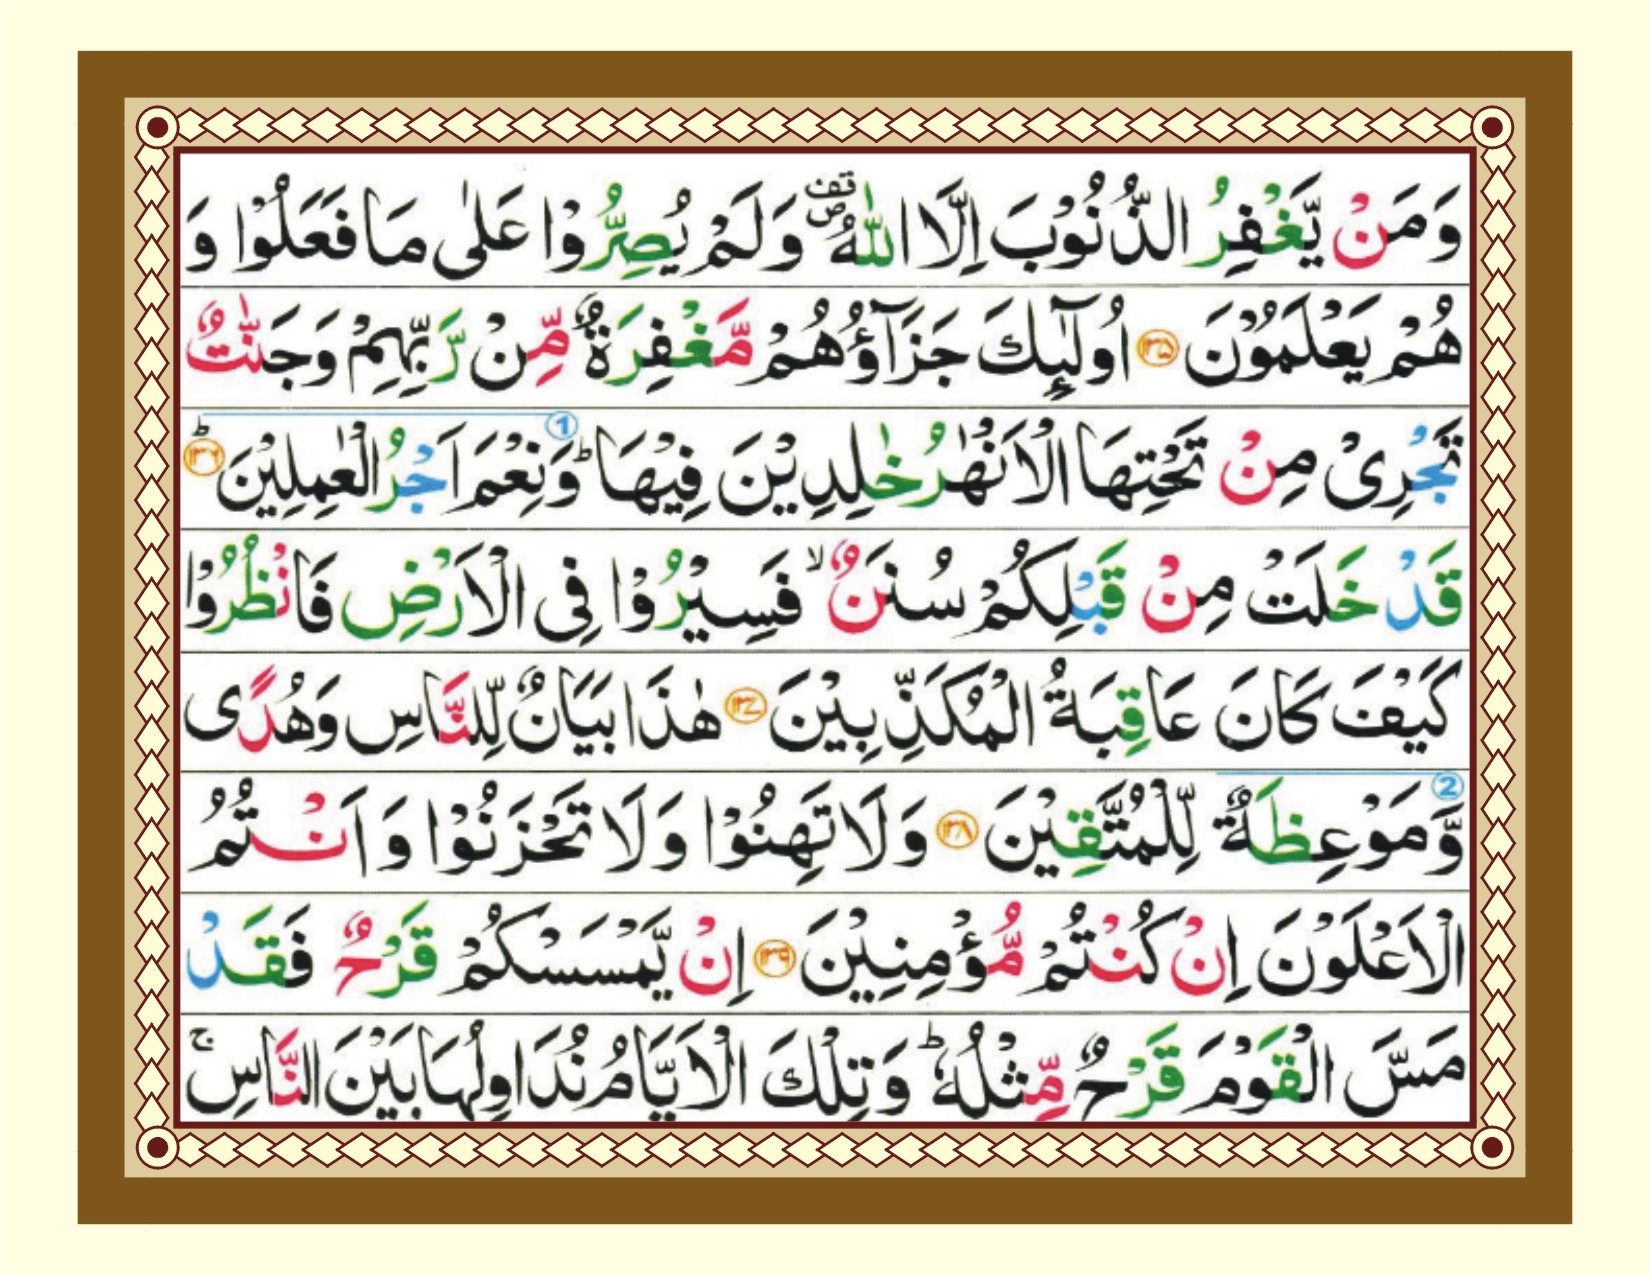 وَمَنْ يَّغْفِرُ الذُّنُوْبَ اِلَّا اللّٰهُ ۪۟ وَلَمْ يُصِرُّوْا عَلٰى مَا فَعَلُوْا وَ
هُمْ يَعْلَمُوْنَ ﴿۱۳۵﴾ اُولٰٓئِكَ جَزَآؤُهُمْ مَّغْفِرَةٌ مِّنْ رَّبِّهِمْ وَجَنّٰتٌ
تَجْرِیْ مِنْ تَحْتِهَا الْاَنْهٰرُ خٰلِدِيْنَ فِيْهَا ؕ وَنِعْمَ اَجْرُ الْعٰمِلِيْنَ ؕ ﴿۱۳۶﴾ 1
قَدْ خَلَتْ مِنْ قَبْلِكُمْ سُنَنٌ ۙ فَسِيْرُوْا فِی الْاَرْضِ فَانْظُرُوْا
كَيْفَ كَانَ عَاقِبَةُ الْمُكَذِّبِيْنَ ﴿۱۳۷﴾ هٰذَا بَيَانٌ لِّلنَّاسِ وَهُدًی
2 وَّمَوْعِظَةٌ لِّلْمُتَّقِيْنَ ﴿۱۳۸﴾ وَلَا تَهِنُوْا وَلَا تَحْزَنُوْا وَ اَنْتُمُ
الْاَعْلَوْنَ اِنْ كُنْتُمْ مُّؤْمِنِيْنَ ﴿۱۳۹﴾ اِنْ يَّمْسَسْكُمْ قَرْحٌ فَقَدْ
مَسَّ الْقَوْمَ قَرْحٌ مِّثْلُهٗ ؕ وَتِلْكَ الْاَيَّامُ نُدَاوِلُهَا بَيْنَ النَّاسِ ۚ